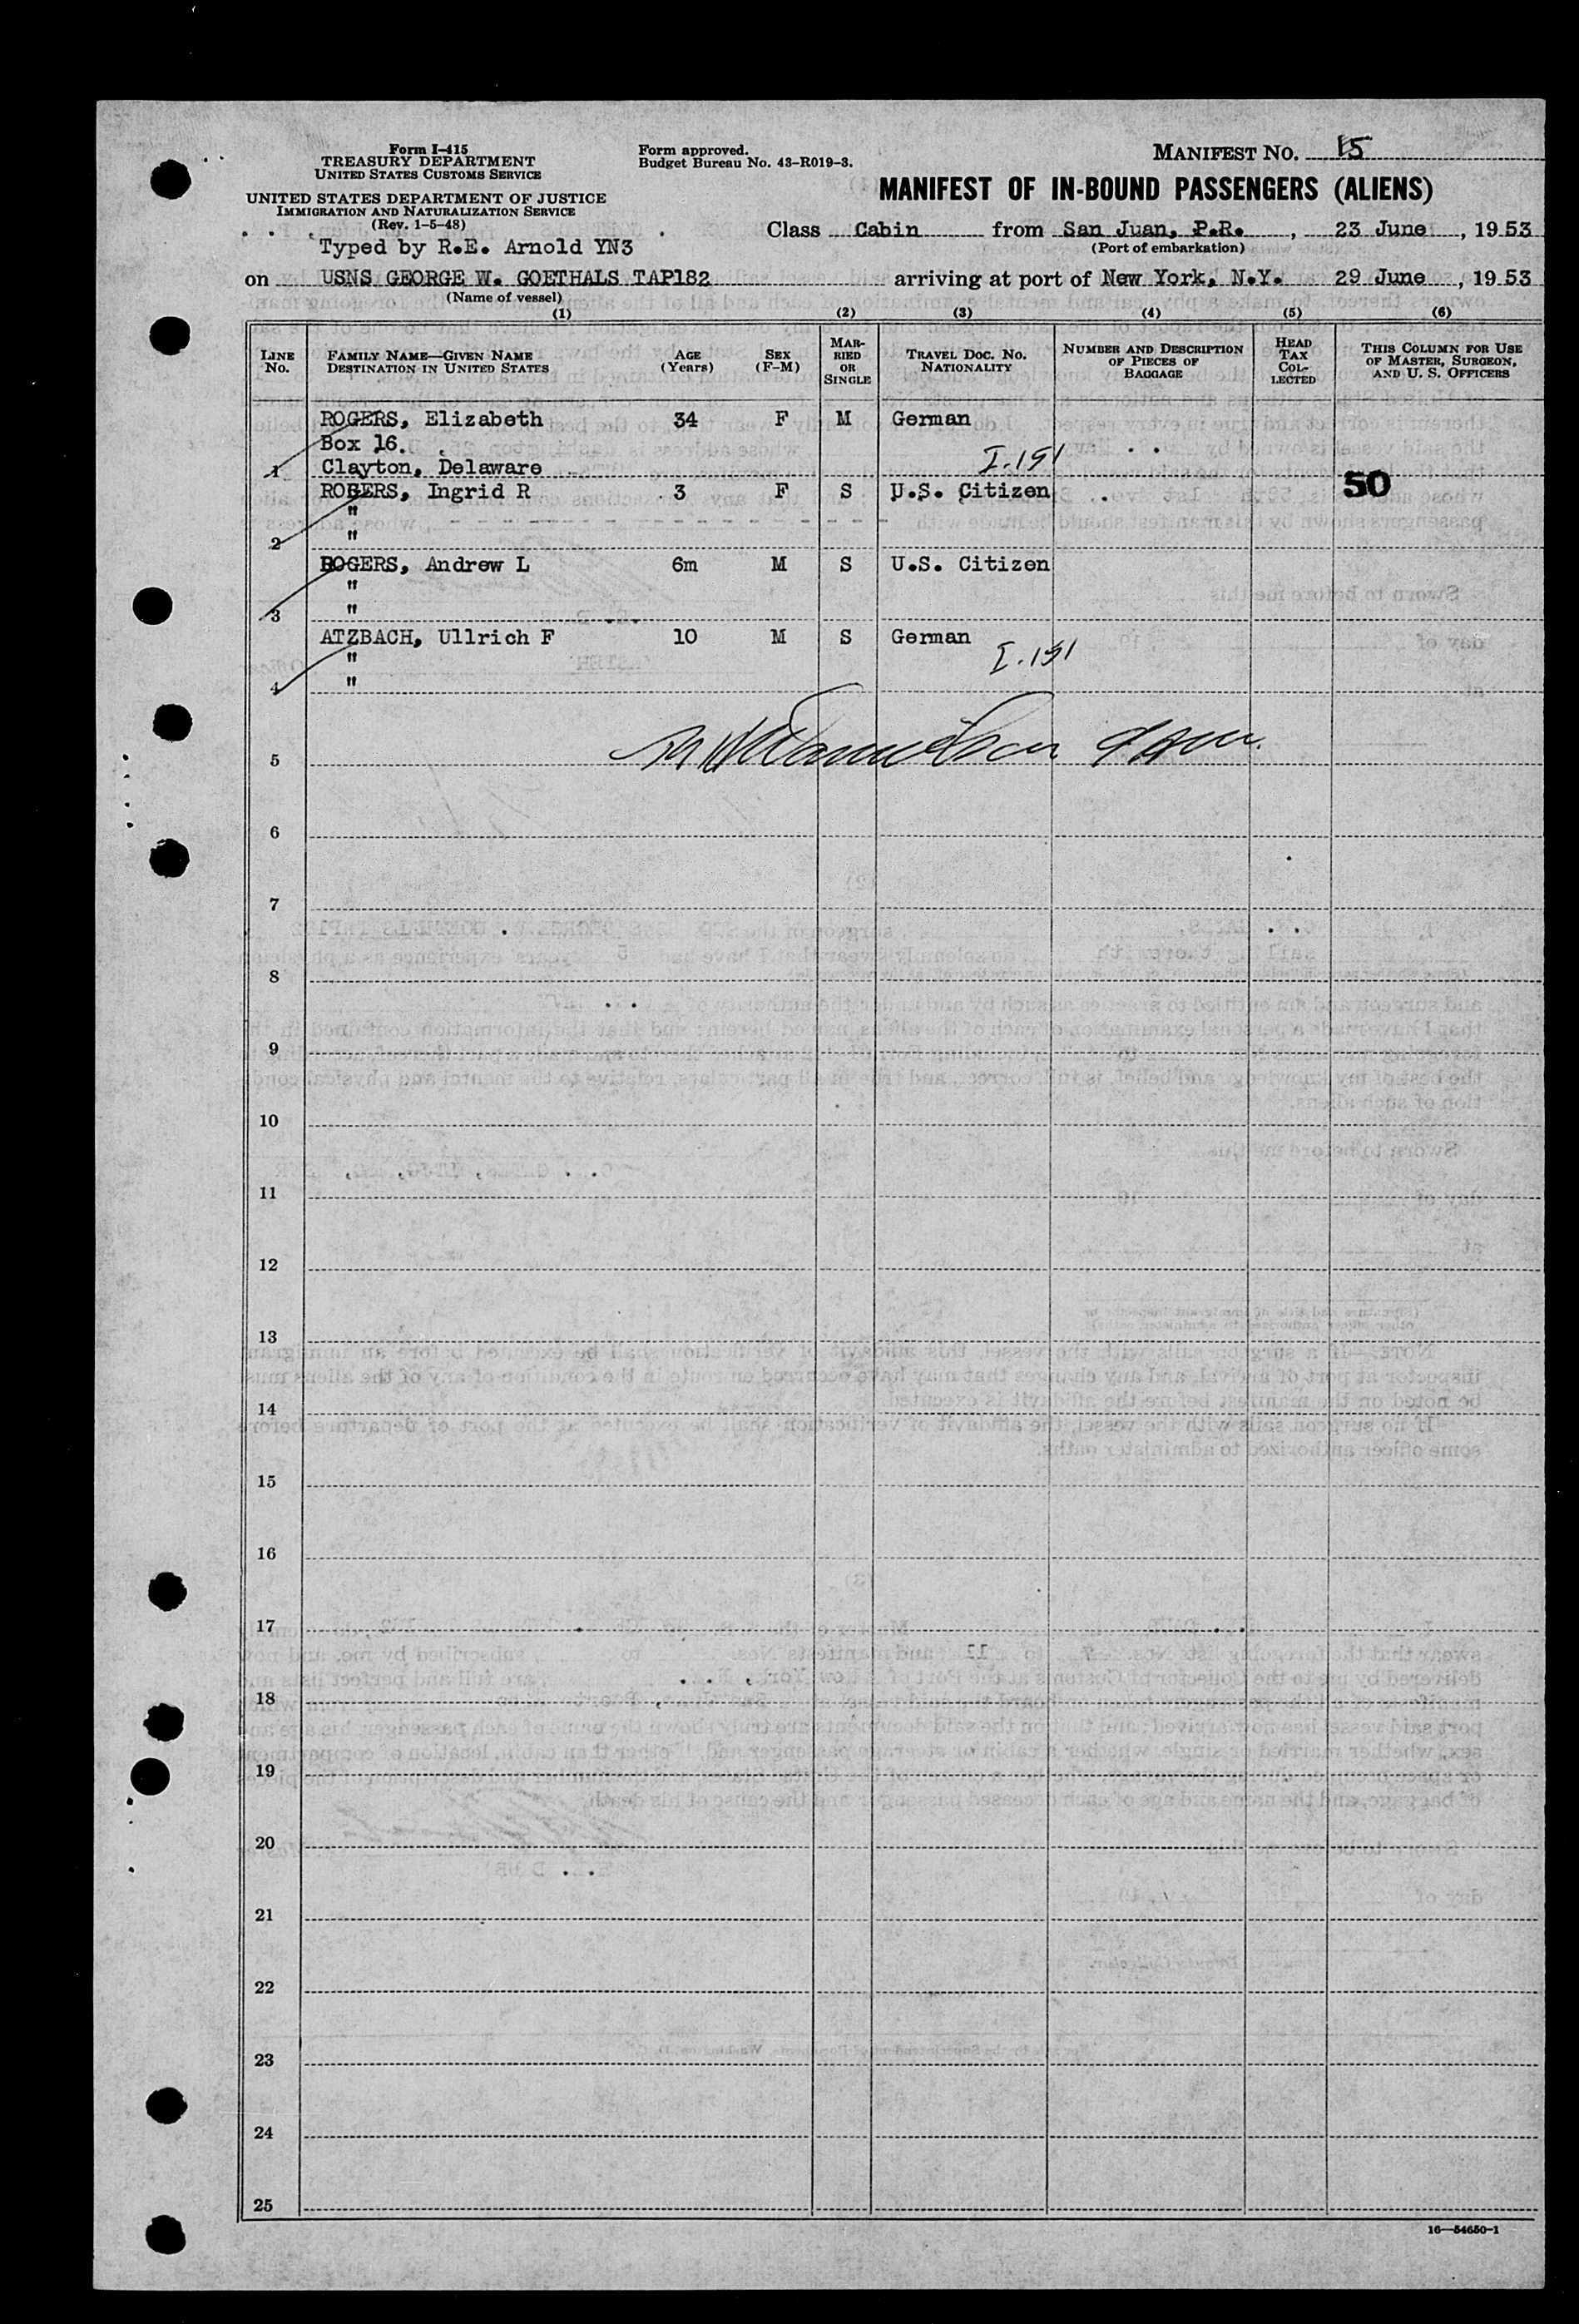 Form I-415
TREASURY DEPARTMENT
UNITED STATES CUSTOMS SERVICE
UNITED STATES DEPARTMENT OF JUSTICE
IMMIGRATION AND NATURALIZATION SERVICE
(Rev. 1-5-48)
Form approved.
Budget Bureau No. 43-R019-3.
MANIFEST NO. 15
MANIFEST OF IN-BOUND PASSENGERS (ALIENS)
Class Cabin from San Juan, P.R. , 23 June , 1953
(Port of embarkation)
Typed by R.E. Arnold YN3
on USNS GEORGE W. GOETHALS TAP182 arriving at port of New York, N.Y. 29 June , 1953
(Name of vessel)
(1) (2) (3) (4) (5) (6)
LINE No. FAMILY NAME—GIVEN NAME DESTINATION IN UNITED STATES AGE (Years) SEX (F-M) MARRIED OR SINGLE TRAVEL DOC. NO. NATIONALITY NUMBER AND DESCRIPTION OF PIECES OF BAGGAGE HEAD TAX COLLECTED THIS COLUMN FOR USE OF MASTER, SURGEON, AND U. S. OFFICERS
ROGERS, Elizabeth 34 F M German
Box 16.
1 Clayton, Delaware I.151
ROGERS, Ingrid R 3 F S U.S. Citizen 50
"
2 "
ROGERS, Andrew L 6m M S U.S. Citizen
"
3 "
ATZBACH, Ullrich F 10 M S German
" I.151
4 "
5
6
7
8
9
10
11
12
13
14
15
16
17
18
19
20
21
22
23
24
25
16—54650-1